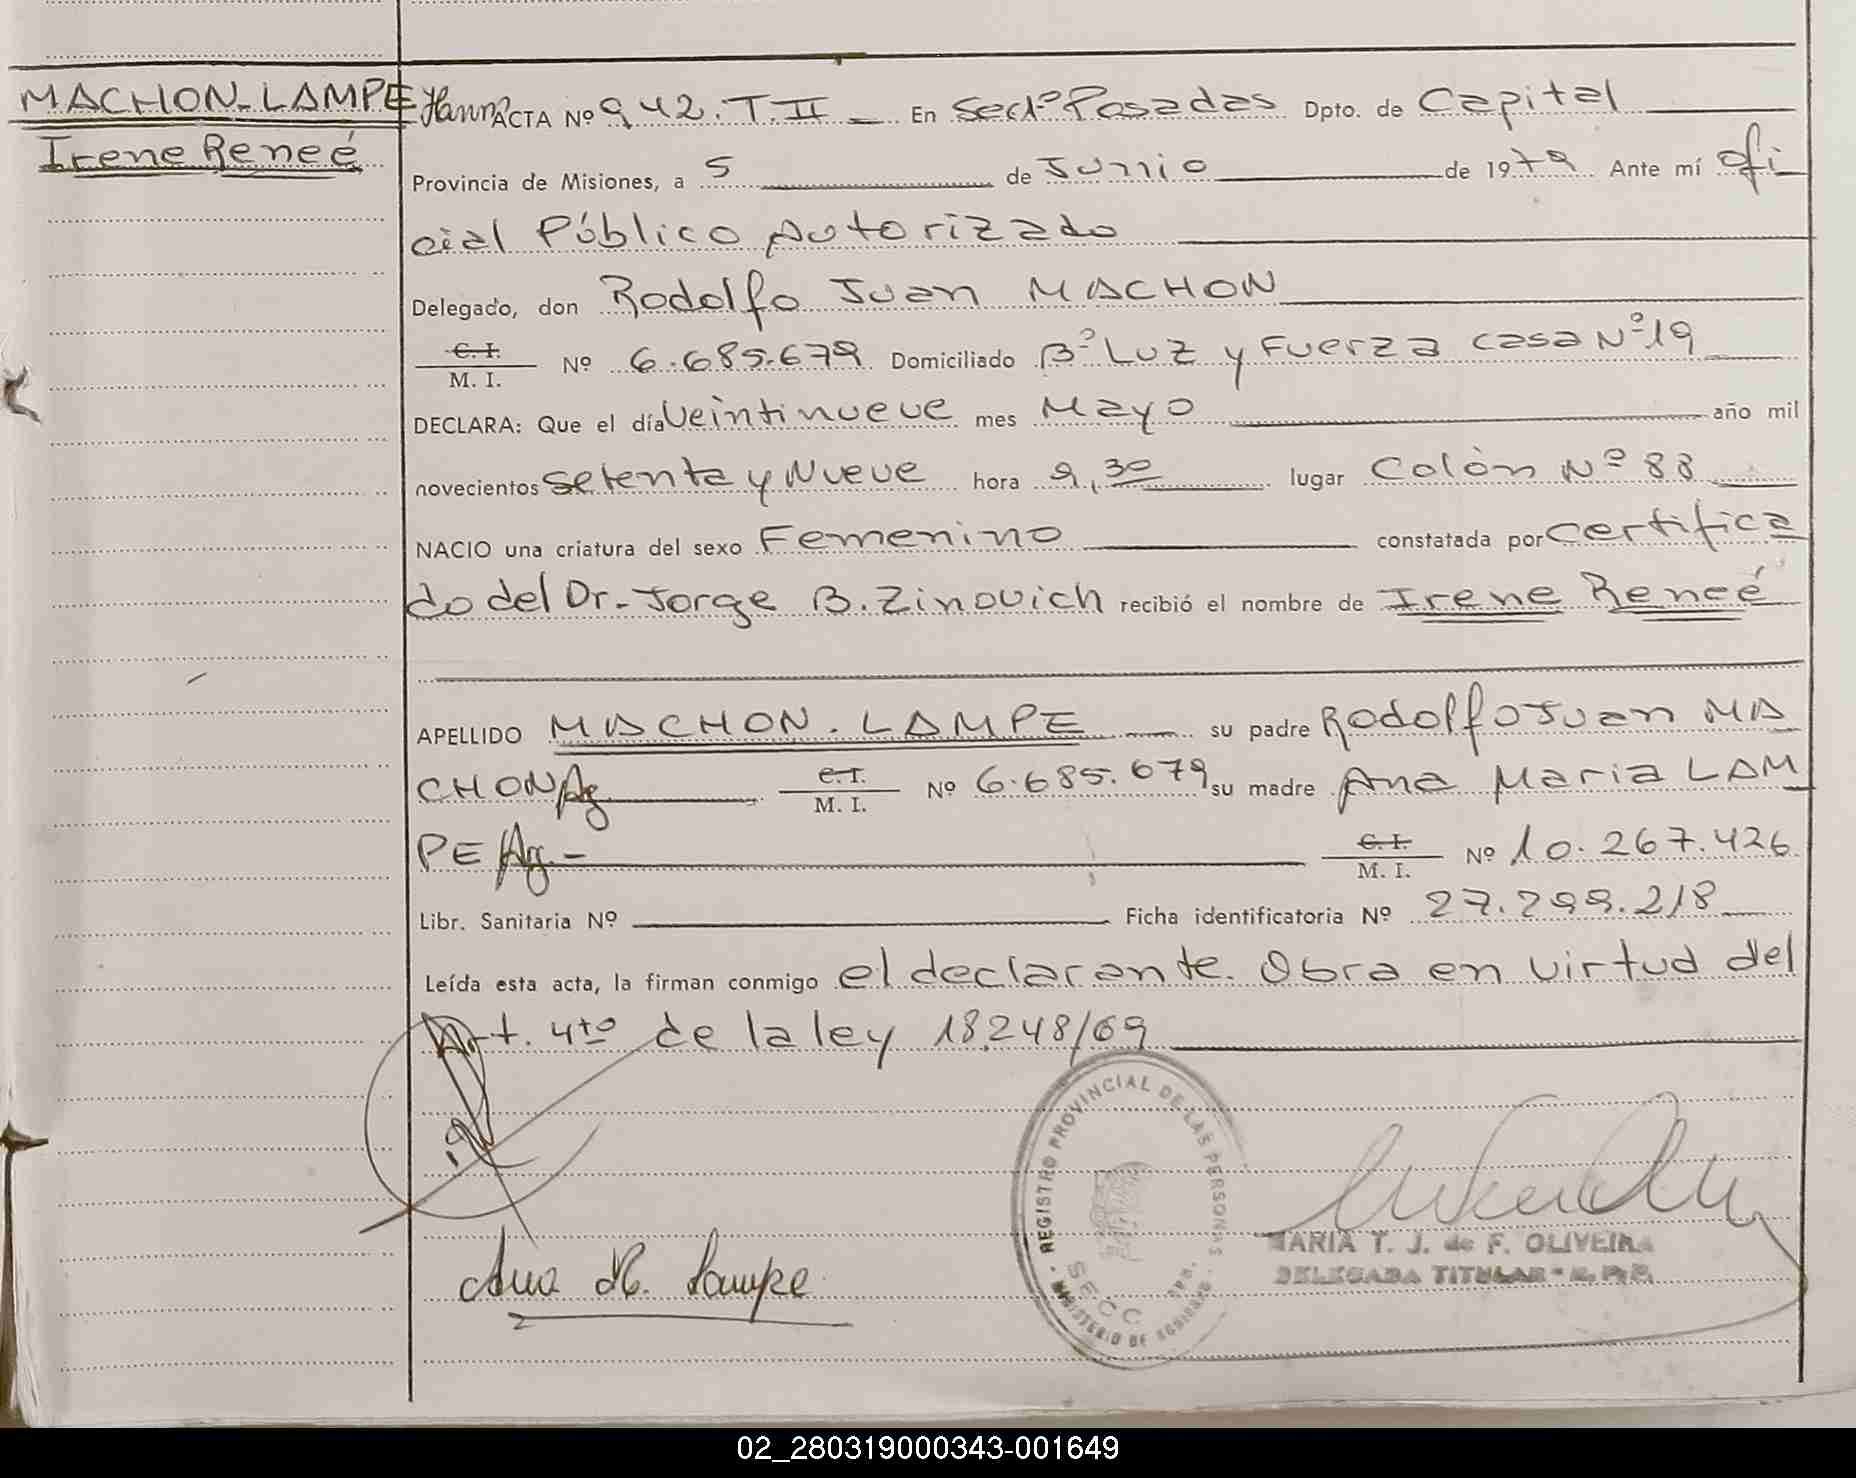 MACHON-LAMPE
Irene Reneé
ACTA Nº 942. T. II En Secc.º Posadas Dpto. de Capital
Provincia de Misiones, a 5 de Junio de 1979 Ante mí Ofi
cial Público Autorizado
Delegado, don Rodolfo Juan MACHON
C. I.
M. I. Nº 6.685.679 Domiciliado Bº Luz y Fuerza casa Nº 19
DECLARA: Que el día Veintinueve mes Mayo año mil
novecientos Setenta y Nueve hora 9,30 lugar Colòn Nº 88
NACIO una criatura del sexo Femenino constatada por Certifica
do del Dr. Jorge B. Zinovich recibió el nombre de Irene Reneé
APELLIDO MACHON-LAMPE su padre Rodolfo Juan MA
CHON Ag C. I.
M. I. Nº 6.685.679 su madre Ana Maria LAM
PE Ag.- C. I.
M. I. Nº 10.267.426
Libr. Sanitaria Nº Ficha identificatoria Nº 27.299.218
Leída esta acta, la firman conmigo el declarante. Obra en virtud del
Art. 4to de la ley 18.248/69
Ana M. Lampe
REGISTRO PROVINCIAL DE LAS PERSONAS
SECC
MINISTERIO DE GOBIERNO
MARIA T. J. de F. OLIVEIRA
DELEGADA TITULAR - R. P. P.
02_280319000343-001649